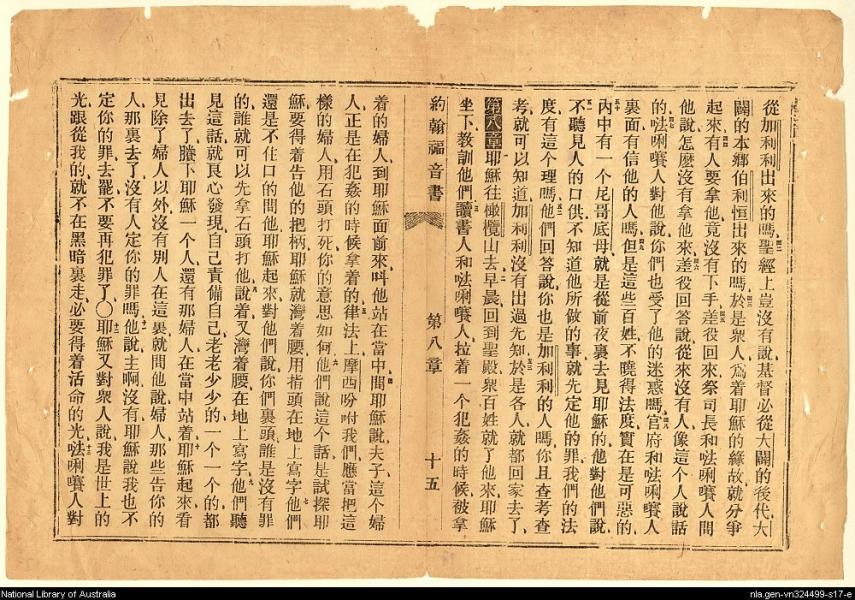 從加利利出來的嗎聖經上豈沒有說基督必從大闢的後代大
闢的本鄉伯利恒出來的嗎於是衆人爲着耶穌的緣故就分爭
起來有人要拿他竟沒有下手差役回來祭司長和𠵽唎嚽人間
他說怎麼沒有拿他來差役回答說從來沒有人像這個人說話
的𠵽唎嚽人對他說你們也受了他的迷惑嗎官府和𠵽唎嚽人
裏面有信他的人嗎但是這些百姓不曉得法度實在是可惡的
內中有一個尼哥底母就是從前夜裏去見耶穌的他對他們說
不聽見人的口供不知道他所做的事就先定他的罪我們的法
度有這個理嗎他們回答說你也是加利利的人嗎你且查考查
考就可以知道加利利沒有出過先知於是各人就都回家去了
第八章耶穌往橄欖山去早晨回到聖殿衆百姓就了他來耶穌
坐下教訓他們讀書人和𠵽唎嚽人拉着一個犯姦的時候被拿
約翰福音書 第八章 十五
着的婦人到耶穌面前來呌他站在當中間耶穌說夫子這個婦
人正是在犯姦的時候拿着的律法上摩西吩咐我們應當把這
樣的婦人用石頭打死你的意思如何他們說這個話是試探耶
穌要得着告他的把柄耶穌就灣着腰用指頭在地上寫字他們
還是不住口的問他耶穌起來對他們說你們裏頭誰是沒有罪
的誰就可以先拿石頭打他說着又灣着腰在地上寫字他們聽
見這話就良心發現自己責備自己老老少少的一個一個的都
出去了賸下耶穌一個人還有那婦人在當中站着耶穌起來看
見除了婦人以外沒有別人在這裏就問他說婦人那些告你的
人那裏去了沒有人定你的罪嗎他說主啊沒有耶穌說我也不
定你的罪去罷不要再犯罪了〇耶穌又對衆人說我是世上的
光跟從我的就不在黑暗裏走必要得着活命的光𠵽唎嚽人對
National Library of Australia
nla.gen-vn324499-s17-e